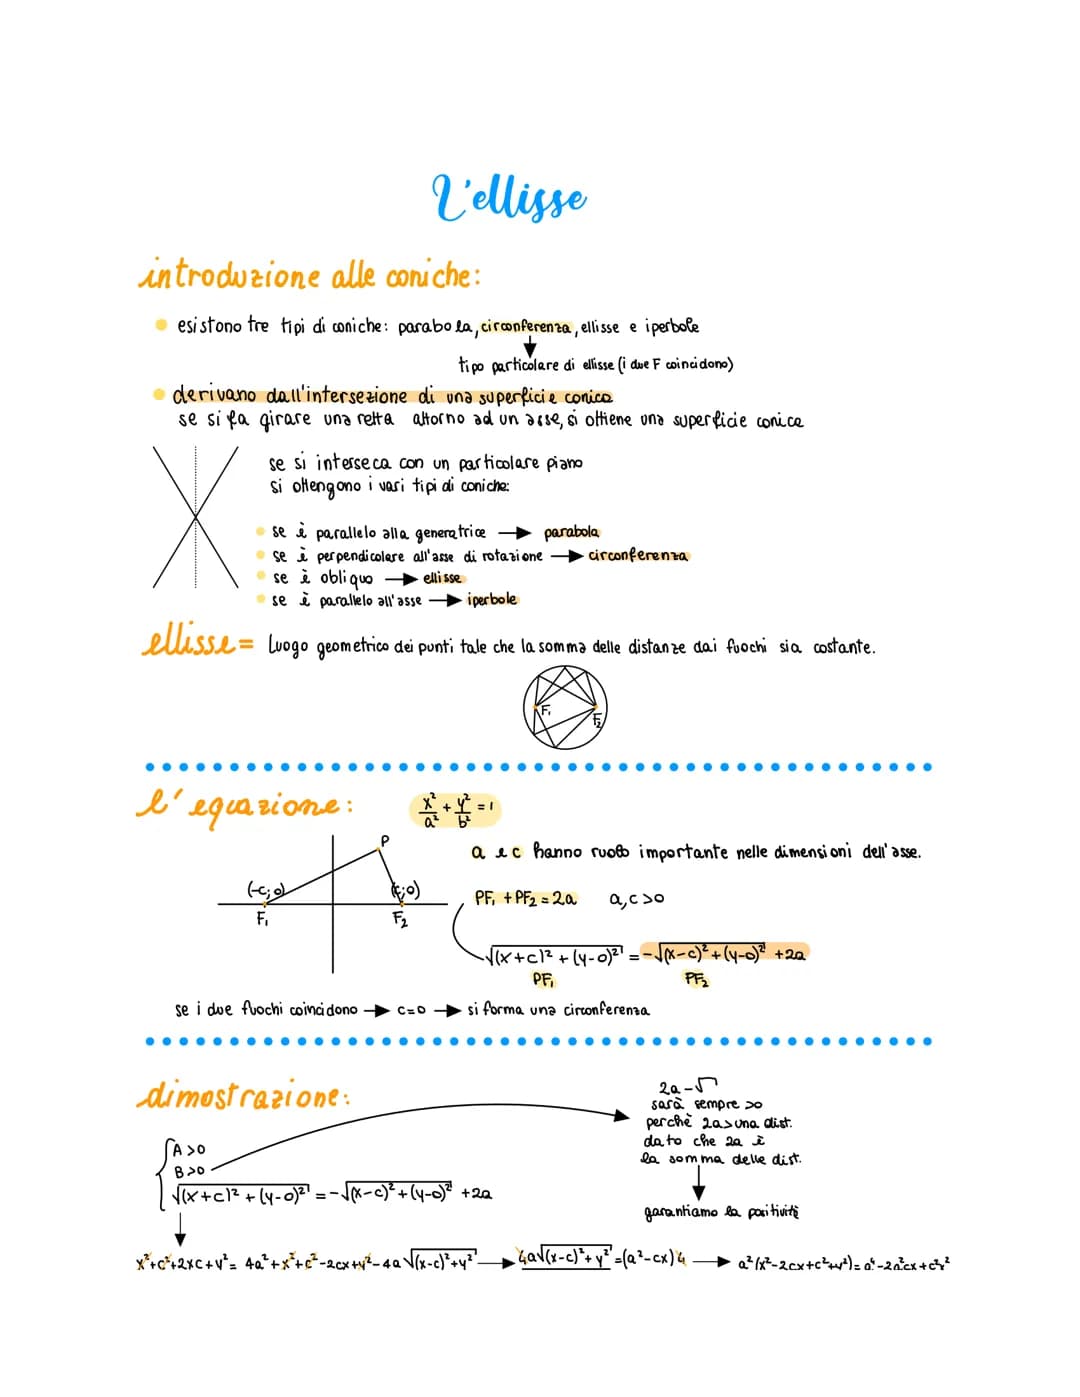 L'ellisse
introduzione alle coniche:
esistono tre tipi di coniche: parabola, circonferenza, ellisse e iperbole
tipo particolare di ellisse (i due F coincidono)
derivano dall'intersezione di una superficie conica
se si fa girare una retta attorno ad un asse, si ottiene una superficie conica
se si interseca con un particolare piano
si ottengono i vari tipi di coniche:
se è parallelo alla generatrice → parabola
se è perpendicolare all'asse di rotazione → circonferenza
se è obliquo → ellisse
se è parallelo all'asse → iperbole
ellisse = Luogo geometrico dei punti tale che la somma delle distanze dai fuochi sia costante.
F₁
F₂
l'equazione: x²/a² + y²/b² = 1
P
a e c hanno ruolo importante nelle dimensioni dell'asse.
(-c;0) (c;0)
F₁ F₂
PF₁ + PF₂ = 2a a,c>0
√(x+c)² + (y-0)² = -√(x-c)² + (y-0)² +2a
PF₁ PF₂
se i due fuochi coincidono → c=0 → si forma una circonferenza
dimostrazione:
2a -√
sarà sempre >0
perchè 2a>una dist.
dato che 2a è
la somma delle dist.
garantiamo la positività
A>0
B>0
√(x+c)² + (y-0)² = -√(x-c)² + (y-0)² +2a
x²+c²+2xc+y² = 4a²+x²+c²-2cx+y²-4a√(x-c)²+y² → 4a√(x-c)²+y² =(a²-cx)4 → a²(x²-2cx+c²+y²)= a⁴-2a²cx+c²x²